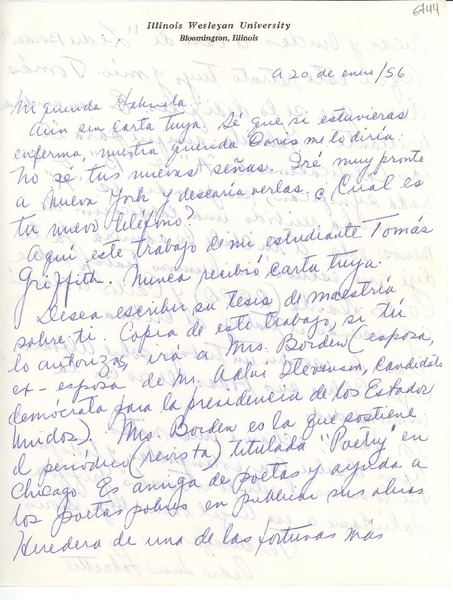 6744
Illinois Wesleyan University
Bloomington, Illinois
A 20 de enero/56
Mi querida Gabriela
Aún sin carta tuya. Sé que si estuvieras
enferma, nuestra querida Doris me lo diría.
No sé tus nuevas señas. Iré muy pronto
a Nueva York y desearía verlas. ¿Cual es
tu nuevo teléfono?
Aquí este trabajo de mi estudiante Tomás
Griffith. Nunca recibió carta tuya.
Desea escribir su tesis de maestría
sobre ti. Copia de este trabajo, si tú
lo autorizas, irá a Mrs. Borden (esposa,
ex-esposa de Mr. Adlai Stevenson, candidato
demócrata para la presidencia de los Estados
Unidos). Mrs. Borden es la que sostiene
el periódico (revista) titulada "Poetry" en
Chicago. Es amiga de poetas y ayuda a
los poetas pobres en publicar sus obras
Heredera de una de las fortunas más